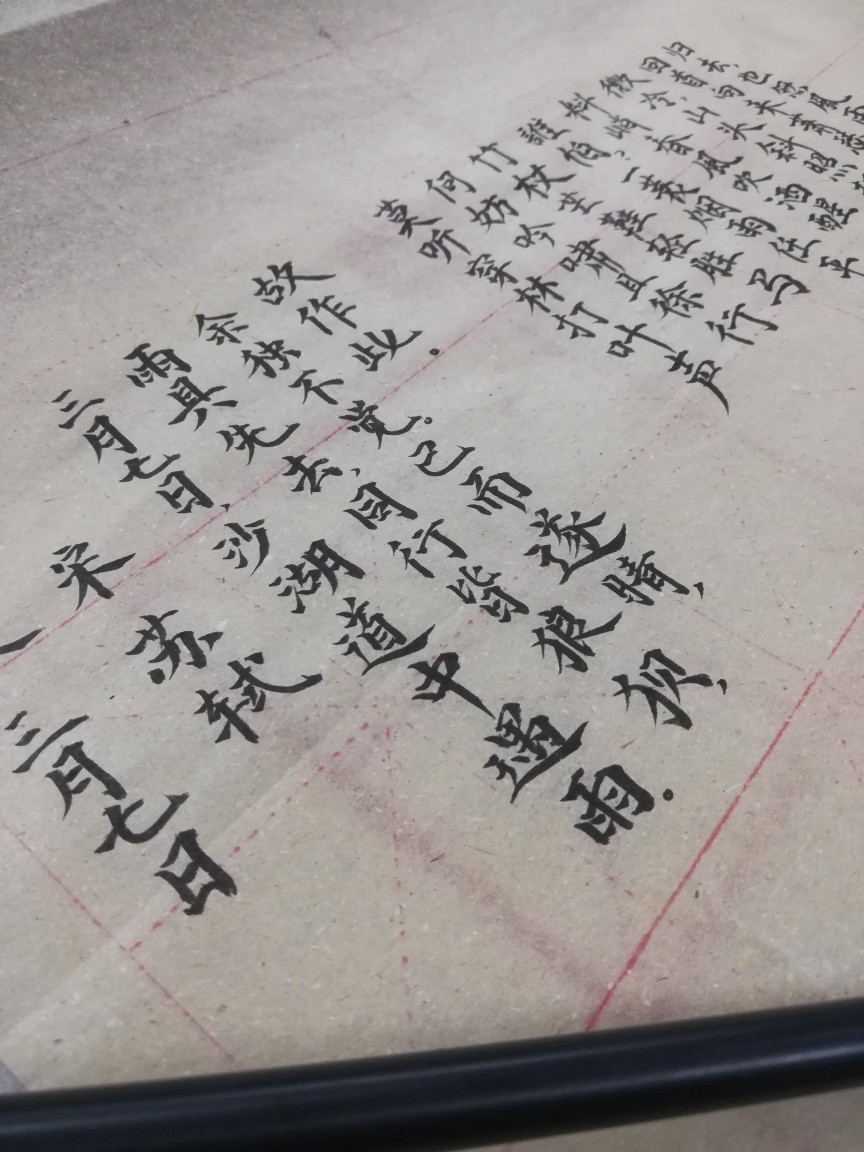 三月七日
宋 苏轼
三月七日,沙湖道中遇雨。
雨具先去,同行皆狼狈,
余独不觉。已而遂晴,
故作此。
莫听穿林打叶声
何妨吟啸且徐行
竹杖芒鞋轻胜马
誰怕?一蓑烟雨任平
料峭春风吹酒醒
微冷,山头斜照
回首向来萧瑟
归去,也無風雨